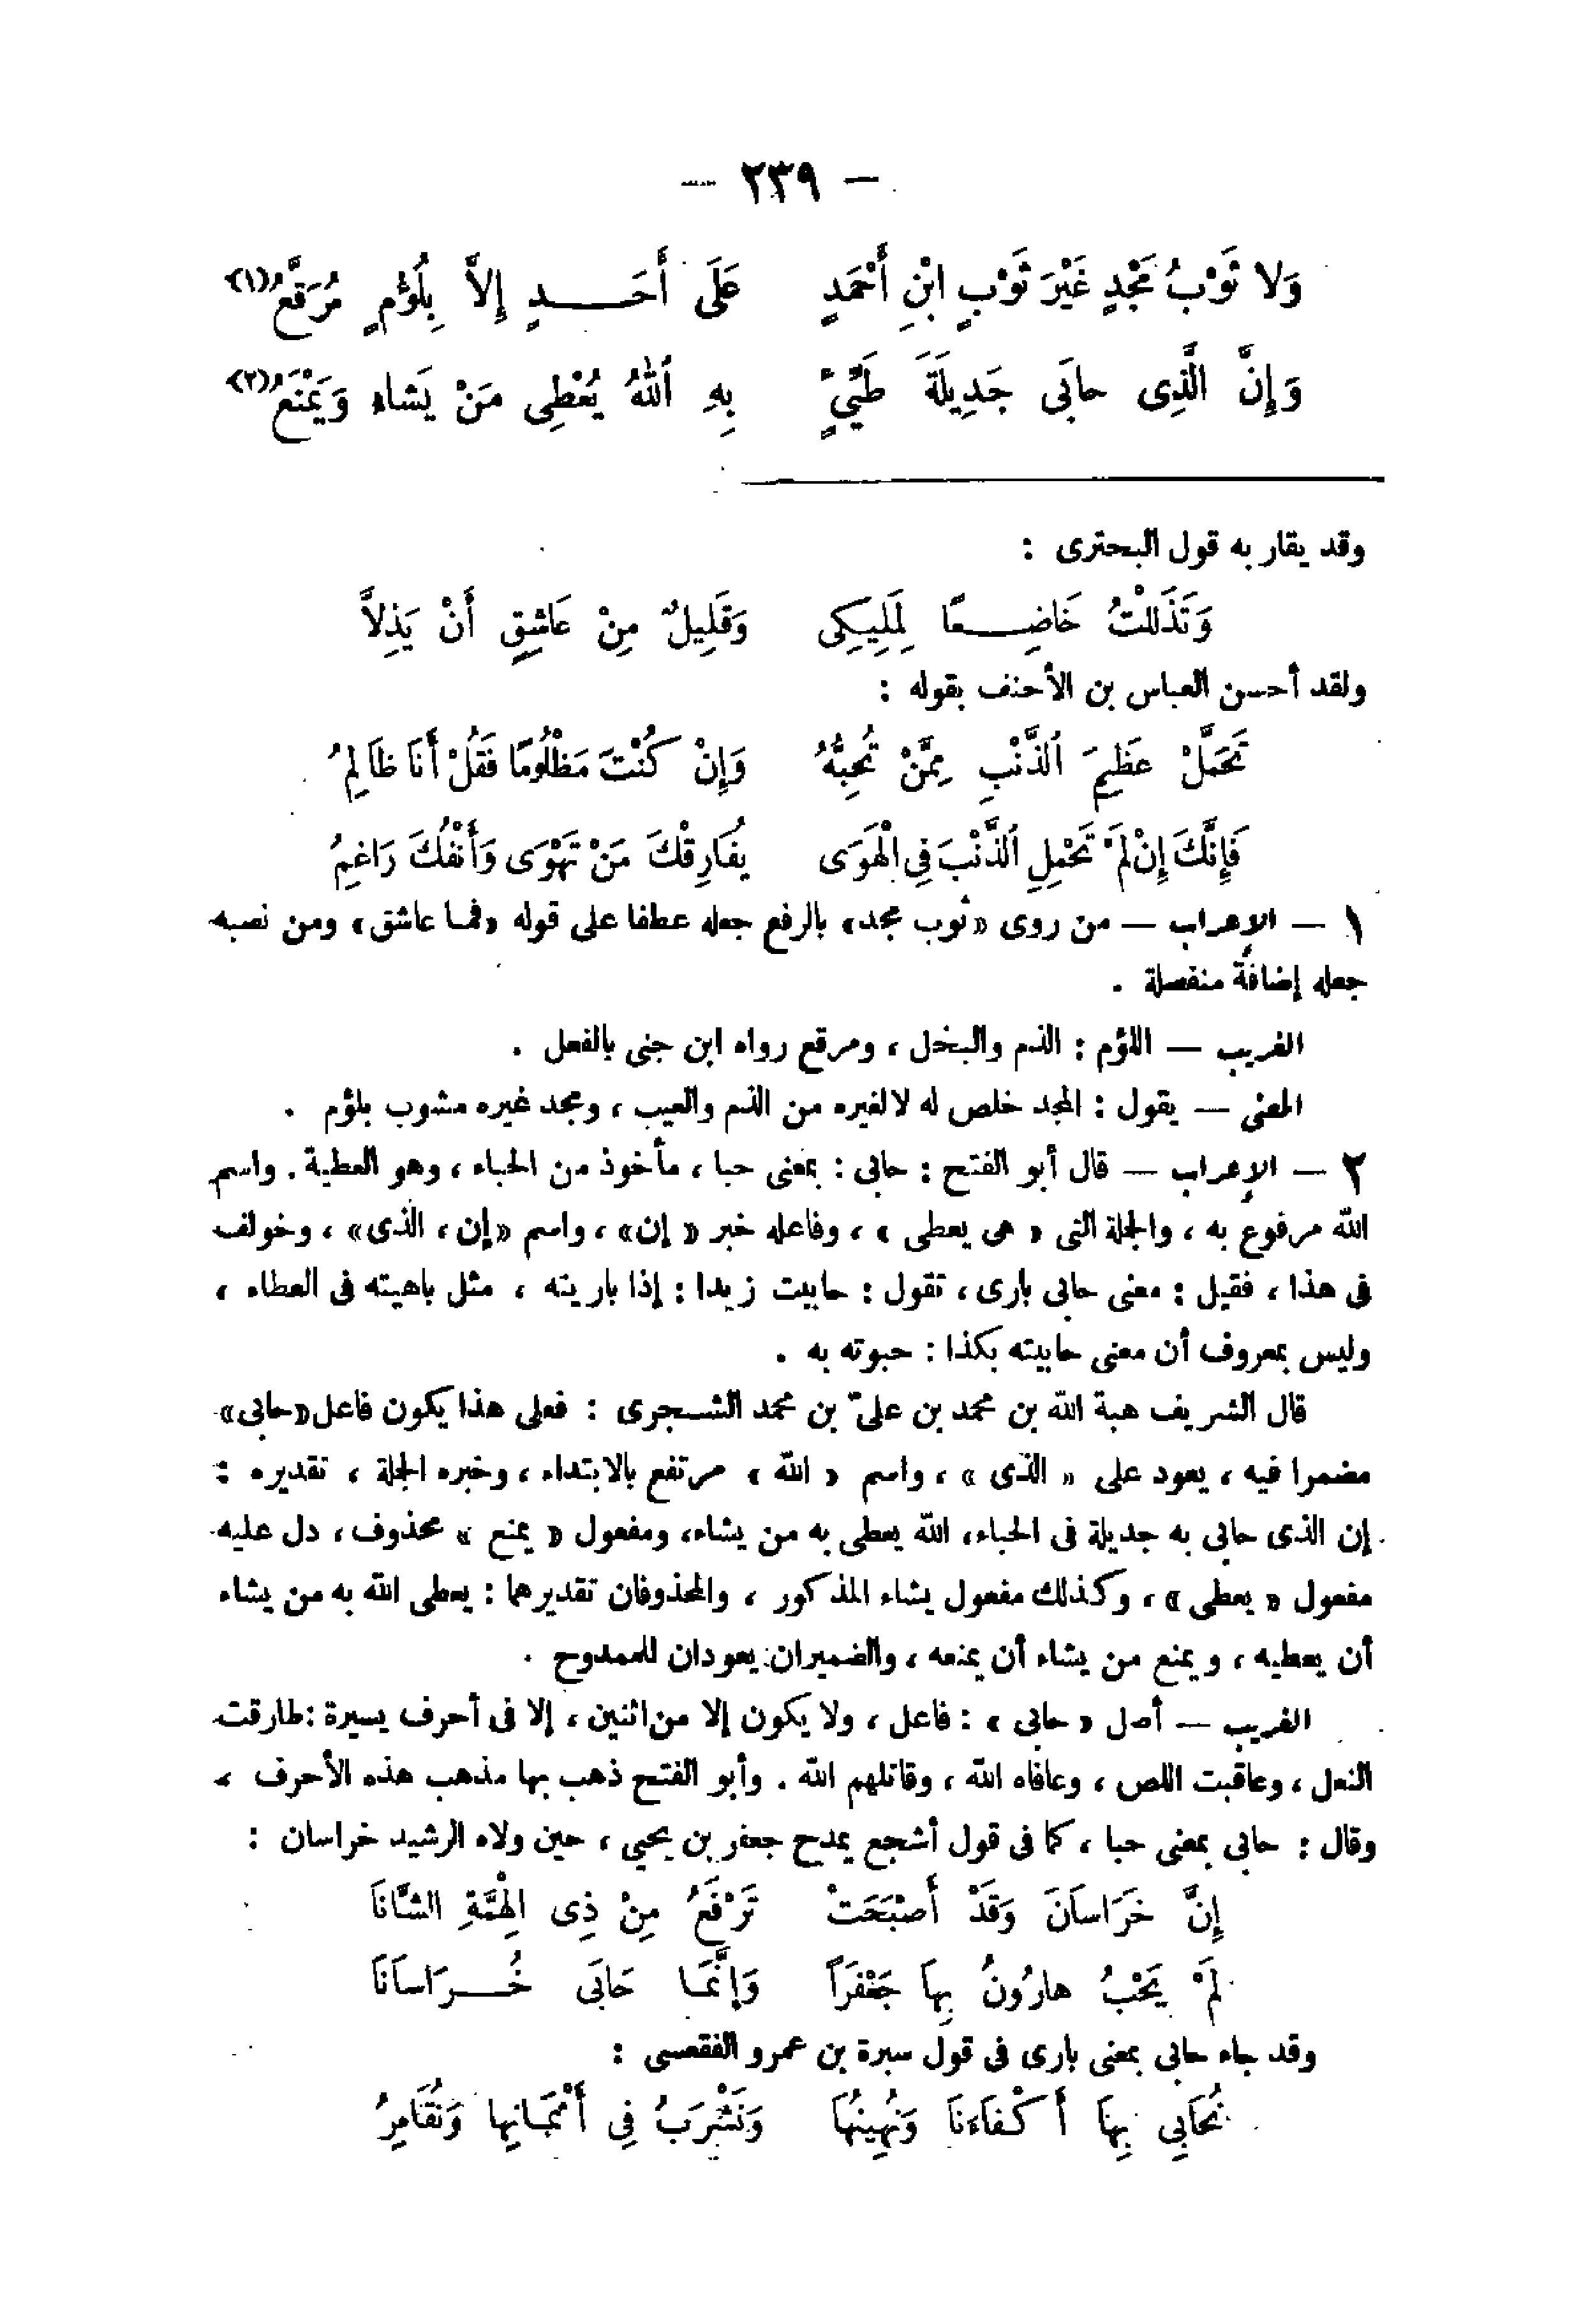 – ٢٣٩ –
وَلا ثَوْبُ مَجْدٍ غَيْرَ ثَوْبِ ابْنِ أَحْمَدٍ عَلَى أَحَـــدٍ إِلاَّ بِلُؤْمٍ مُرَقَّعُ(١)
وَإِنَّ الَّذِى حابَى جَدِيلَةَ طَيِّىءٍ بِهِ اللهُ يُعْطِى مَنْ يَشاءِ وَيَمْنَعُ(٢)
وقد يقاربه قول البحترى :
وَتَذَللْتُ خَاضِـــعًا لِمَلِيكِى وَقَلِيلٌ مِنْ عَاشِقٍ أَنْ يَذِلاَّ
ولقد أحسن العباس بن الأحنف بقوله :
تَحَمَّلْ عَظِيمَ الذَّنْبِ مِمَّنْ تُحِبُّهُ وَإِنْ كُنْتَ مَظْلُومًا فَقُلْ أَنَا ظَالِمُ
فَإِنَّكَ إِنْ لَمْ تَحْمِلِ الذَّنْبَ فِي الْهَوَى يُفَارِقْكَ مَنْ تَهْوَى وَأَنْفُكَ رَاغِمُ
١ — الإعراب — من روى «ثوب مجد» بالرفع جعله عطفا على قوله «فما عاشق» ومن نصبه
جعله إضافة منفصلة .
الغريب — اللؤم : الذم والبخل ، ومرقع رواه ابن جنى بالفعل .
المعنى — يقول : المجد خلص له لا لغيره من الذم والعيب ، ومجد غيره مشوب بلؤم .
٢ — الإعراب — قال أبو الفتح : حابى : بمعنى حبا ، مأخوذ من الحباء ، وهو العطية . واسم
الله مرفوع به ، والجملة التى « هى يعطى » ، وفاعله خبر « إن» ، واسم «إن ، الذى» ، وخولف
فى هذا ، فقيل : معنى حابى بارى ، تقول : حابيت زيدا : إذا باريته ، مثل باهيته فى العطاء ،
وليس بمعروف أن معنى حابيته بكذا : حبوته به .
قال الشريف هبة الله بن محمد بن علىّ بن محمد الشـجرى : فعلى هذا يكون فاعل «حابى»
مضمرا فيه ، يعود على « الذى » ، واسم « الله » مرتفع بالابتداء ، وخبره الجملة ، تقديره :
إن الذى حابى به جديلة فى الحباء، الله يعطى به من يشاء، ومفعول « يمنع » محذوف ، دل عليه
مفعول « يعطى » ، وكذلك مفعول يشاء المذكور ، والمحذوفان تقديرهما : يعطى الله به من يشاء
أن يعطيه ، ويمنع من يشاء أن يمنعه ، والضميران يعودان للممدوح .
الغريب — أصل « حابى » : فاعل ، ولا يكون إلا من اثنين ، إلا فى أحرف يسيرة : طارقت
النعل ، وعاقبت اللص ، وعافاه الله ، وقاتلهم الله . وأبو الفتح ذهب بها مذهب هذه الأحرف ،
وقال : حابى بمعنى حبا ، كما فى قول أشجع يمدح جعفر بن يحيى ، حين ولاه الرشيد خراسان :
إِنَّ خَرَاسَانَ وَقَدْ أَصْبَحَتْ تَرْفَعُ مِنْ ذِى الْهِمَّةِ الشَّانَا
لَمْ يَحْبُ هارُونُ بِهاَ جَعْفَرَاً وَإِنَّمَـا حَابَى خُـــرَاسَانَا
وقد جاء حابى بمعنى بارى فى قول سبرة بن عمرو الفقعسى :
نُحَابِي بِهَا أَكْفَاءَنَا وَنُهِينُهَا وَنَشْرَبُ فِى أَثْمَـانِها وَنُقَامِرُ